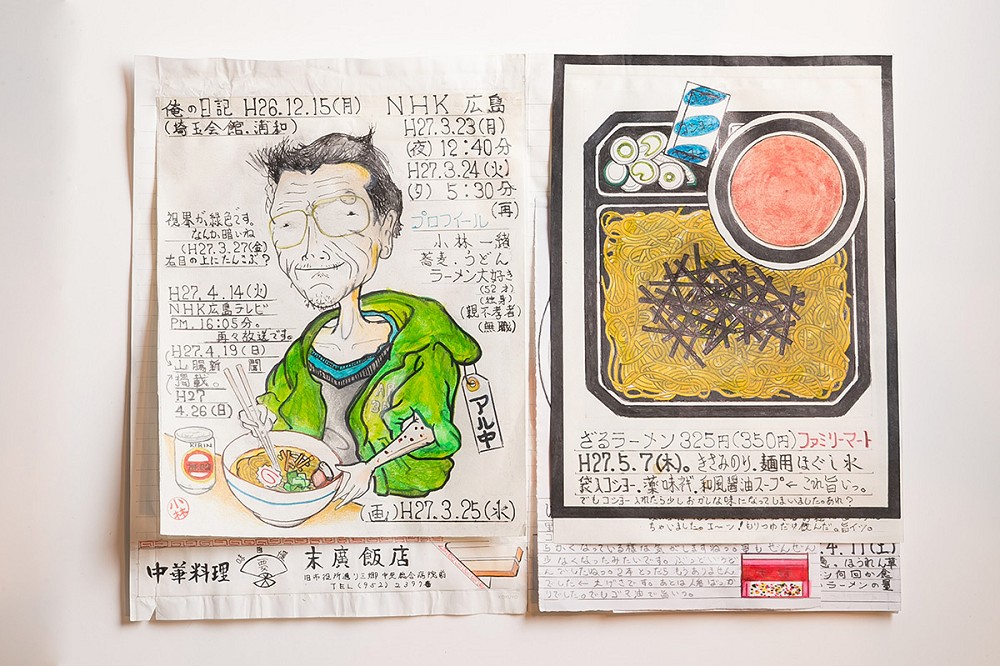 俺の日記 H26.12.15(月)
(埼玉会館.浦和)
NHK 広島
H27.3.23(月)
(夜) 12:40分
H27.3.24(火)
(夕) 5:30分
(再)
プロフィール
小林一緒
蕎麦.うどん
ラーメン大好き
(52才)
(独身)
(親不孝者)
(無職)
視界が緑色です。
なんか暗いね
(H27.3.27(金)
右目の上にたんこぶ?
H27.4.14(火)
NHK広島テレビ
PM.16:05分。
再々放送です。
H27.4.19(日)
山陽新聞
掲載。
H27
4.26(日)
アル中
KIRIN
BEER
小林
(画)H27.3.25(水)
中華料理
末廣飯店
旧市役所通り三郷中央総合病院前
TEL(952)2397番
ざるラーメン 325円(350円)ファミリーマート
H27.5.7(木)。きざみのり.麺用はぐし水
袋入コショー.薬味ネギ.和風醤油スープ←これ旨いっ。
でもコショー入れたら少しおかしな味になってしまいました。あれ?
ちゃいました。エ〜ッ!もりつゆだけ飲んだ。旨イッ。
4.11(土)
ほうれん草
ン何回か食
ラーメンの量
少なくなったみたいです。
でした←大げさです。